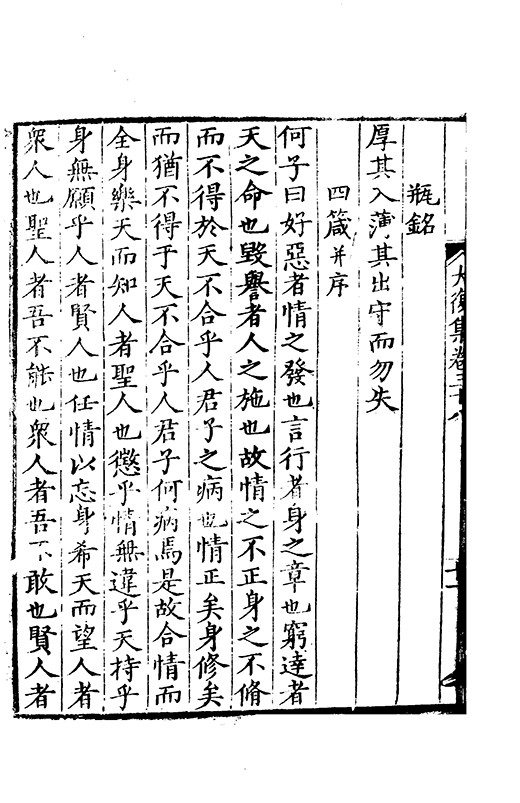 大復集卷三十八
十一
瓶銘
厚其入薄其出守而勿失
四箴并序
何子曰好惡者情之發也言行者身之章也窮達者
天之命也毀譽者人之施也故情之不正身之不脩
而不得於天不合乎人君子之病也情正矣身修矣
而猶不得于天不合乎人君子何病焉是故合情而
全身樂天而知人者聖人也懲乎情無違乎天持乎
身無願乎人者賢人也任情以忘身希天而望人者
衆人也聖人者吾不能也衆人者吾不敢也賢人者